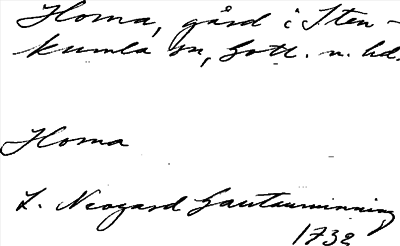 Homa, gård i Sten-
kumla sn, Gotl. n. hd.
Homa
L. Neogard Gautauminning
1732